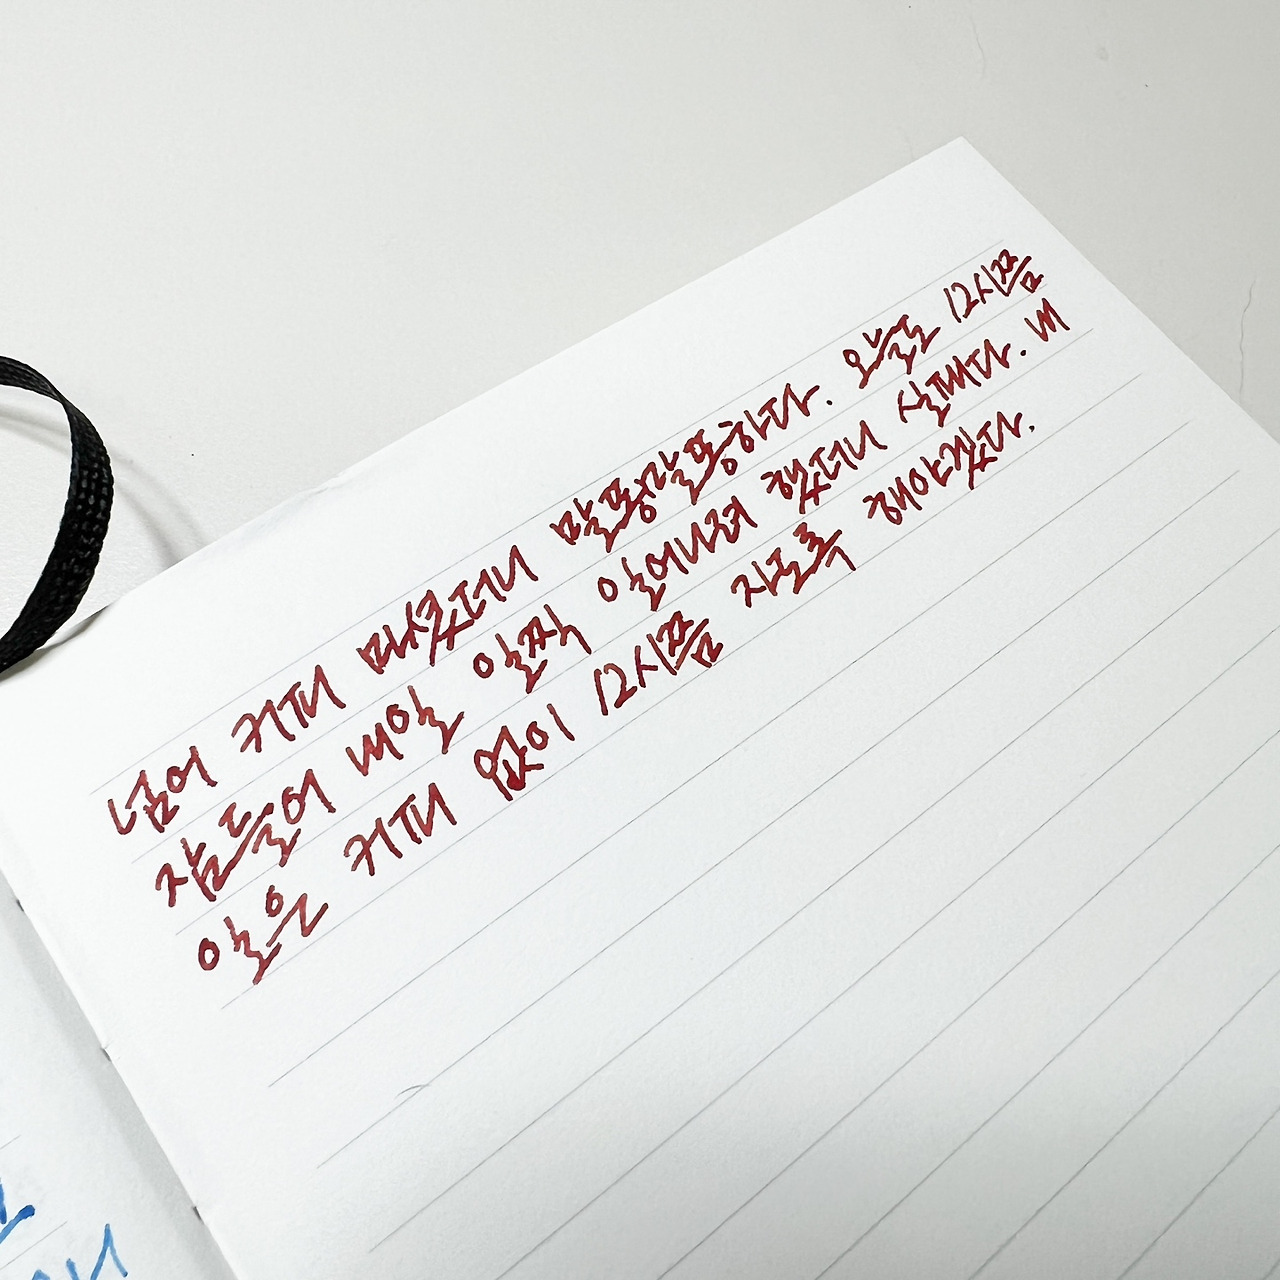 커피 마셨더니 말똥말똥하다. 오늘도 12시쯤
잠들어 내일 일찍 일어나려 했더니 실패다. 내
일은 커피 없이 12시쯤 자도록 해야겠다.